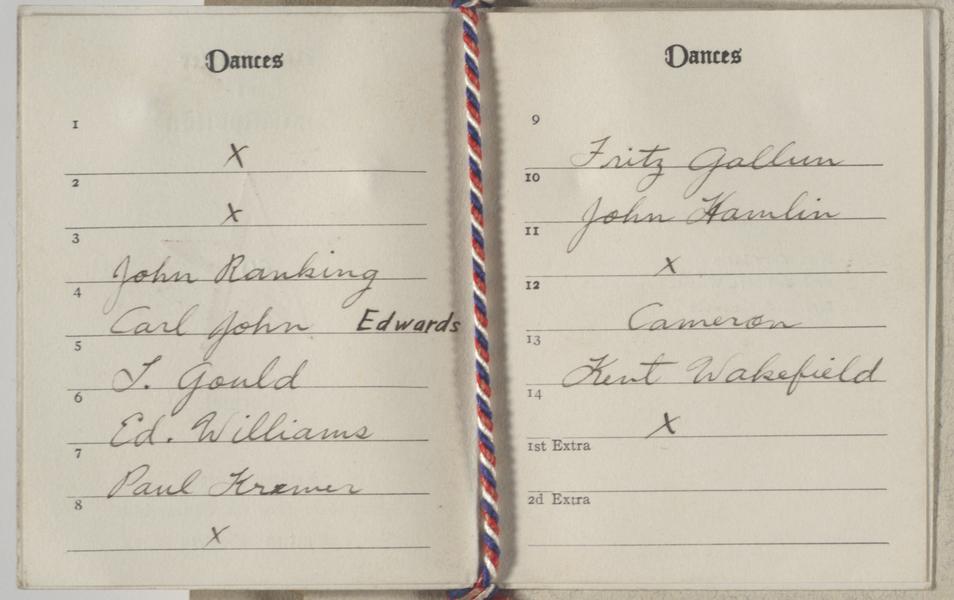 Dances
1
X
2
X
3
John Ranking
4
Carl John Edwards
5
T. Gould
6
Ed. Williams
7
Paul Kremer
8
X
Dances
9
Fritz Gallun
10
John Hamlin
11
X
12
Cameron
13
Kent Wakefield
14
X
1st Extra
2d Extra